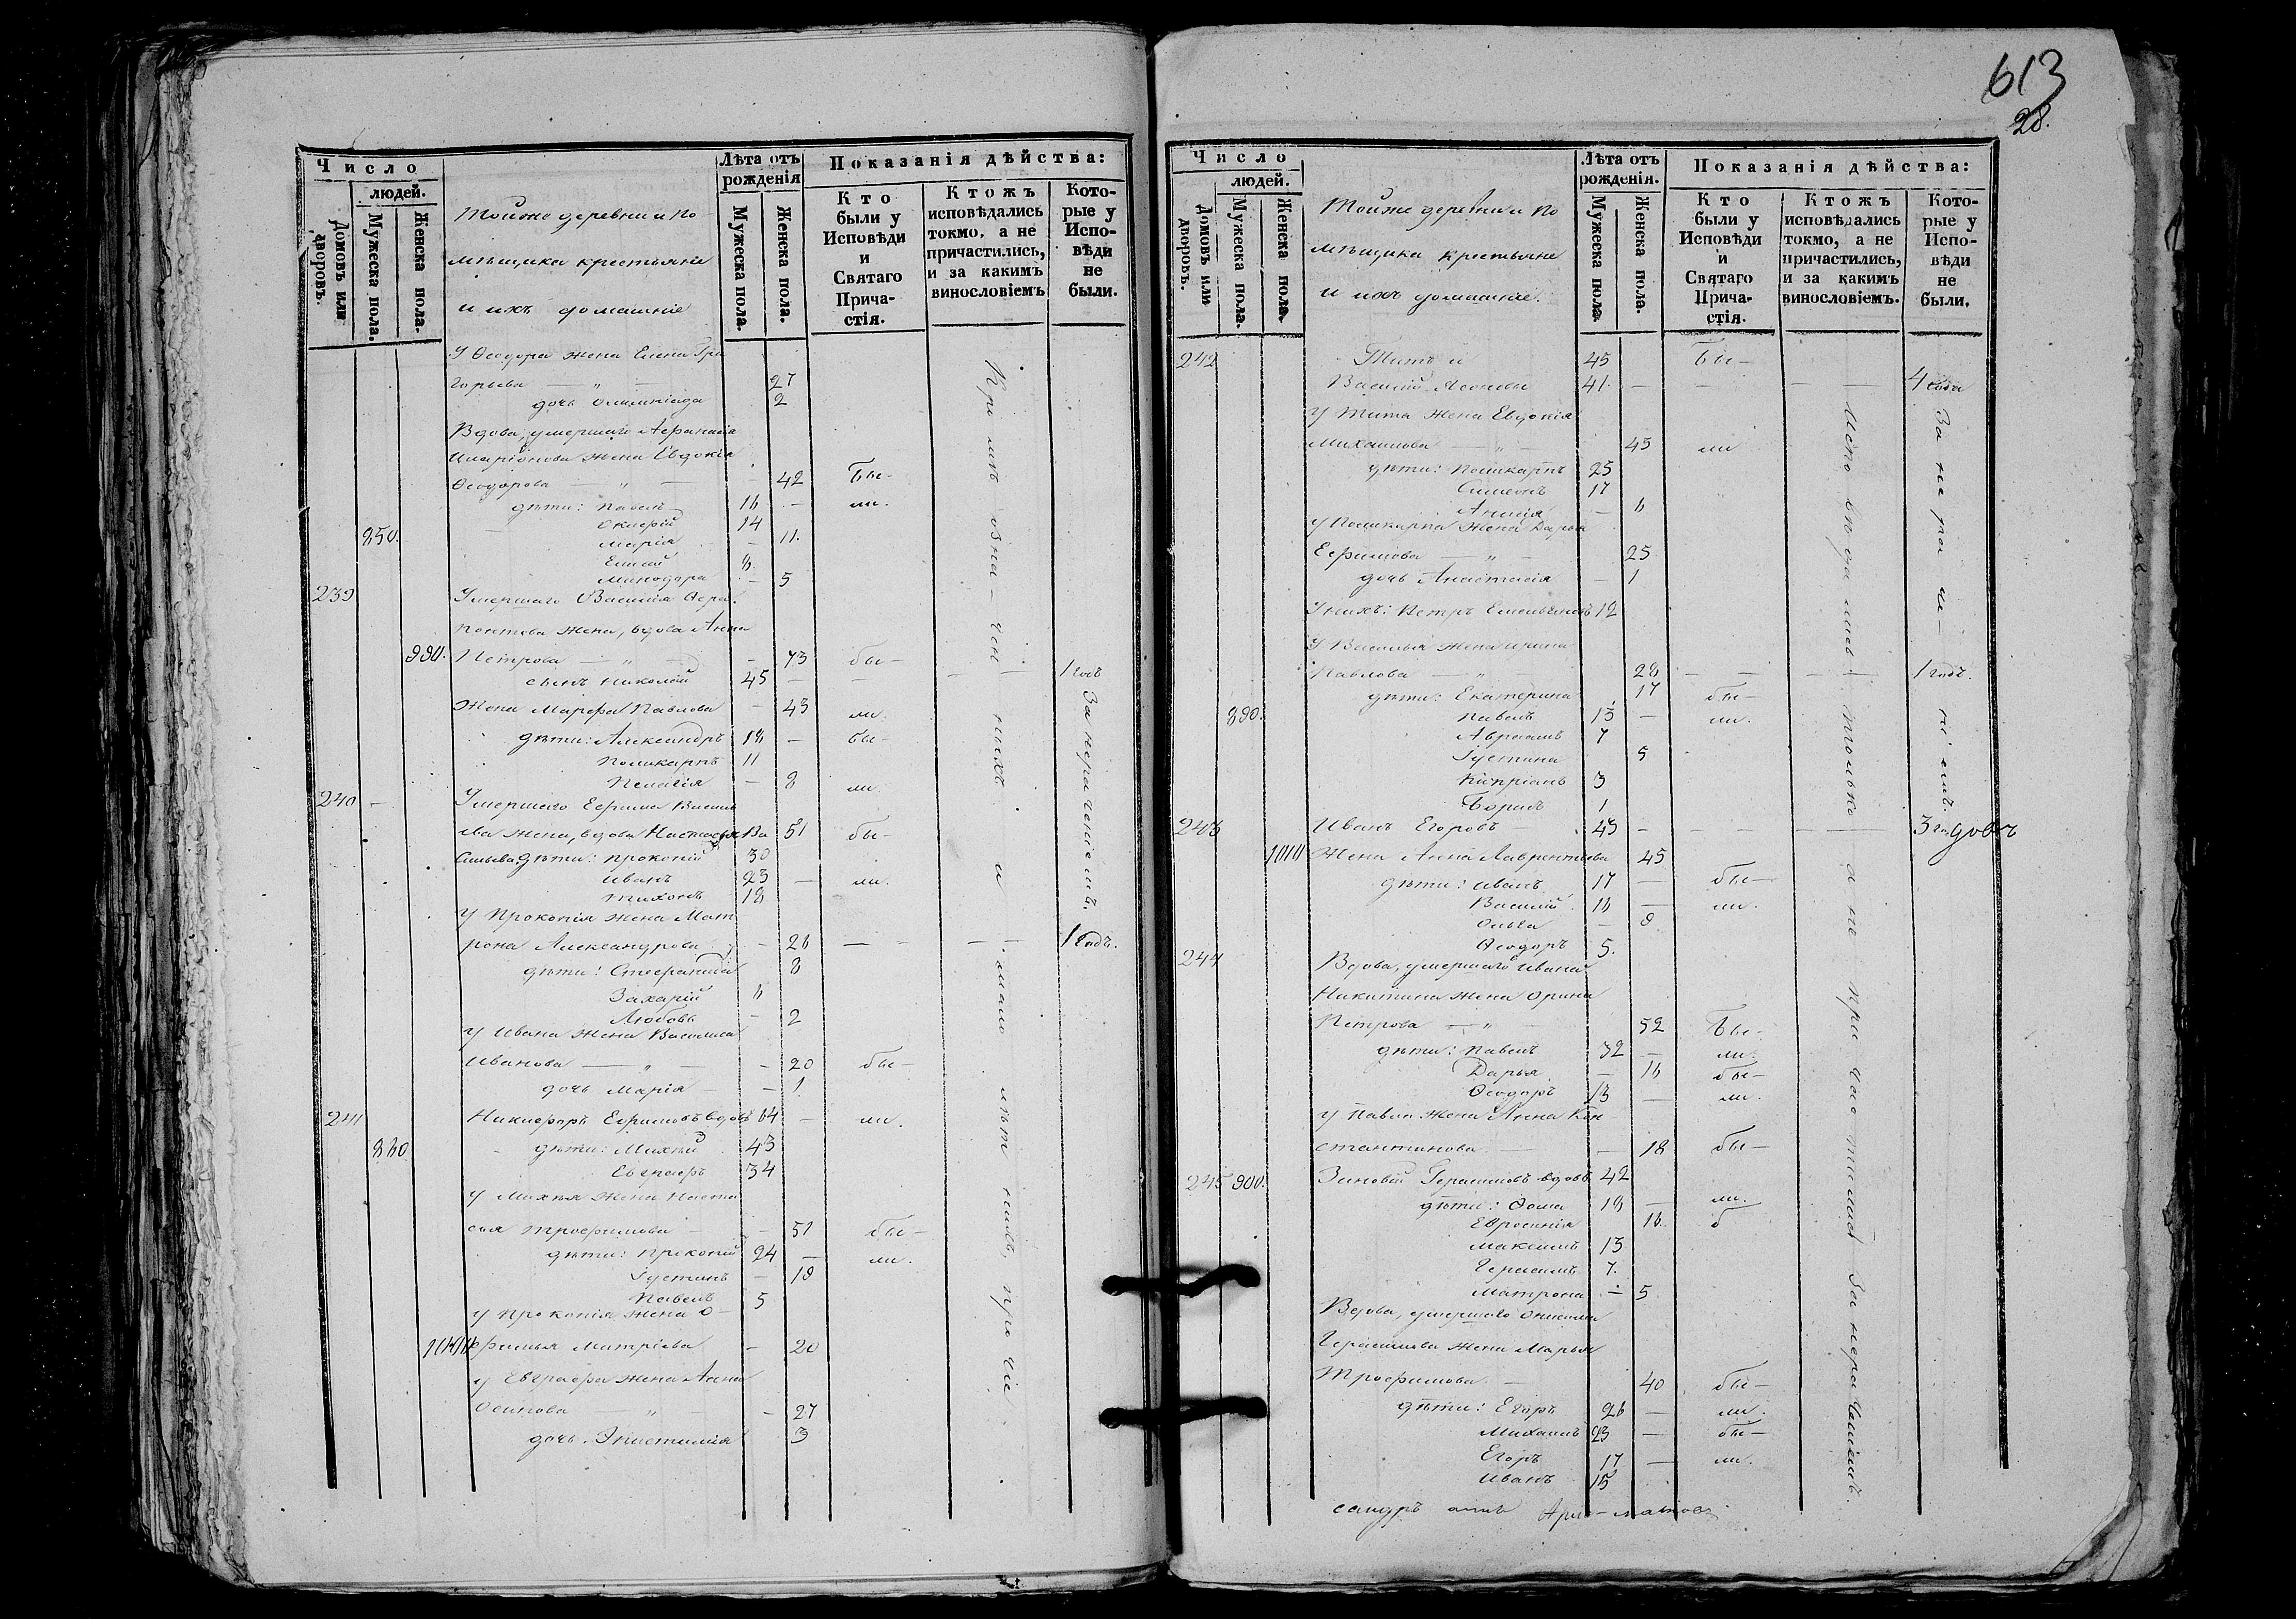 613
28.
Число
людей.
Домовъ или дворовъ.
Мужеска пола.
Женска пола.
Лѣта отъ рожденія
Мужеска пола.
Женска пола.
Показанія дѣйства:
Кто были у Исповѣди и Святаго Причастія.
Ктожъ исповѣдались токмо, а не причастились, и за какимъ винословіемъ
Которые у Исповѣди не были.
Тойже деревни и по
мѣщика крестьяне
и ихъ домашніе
У Ѳеодора жена Елена Гри
горьева — „ — 27
дочь Олимпіада 2
Вдова, умершаго Афанасія
Иларіонова жена Евдокія
Ѳеодорова — „ — 42 бы-
дѣти: Павелъ 16 - ли.
14
850. Марія - 11.
5
239 Умершаго Василія
жена, вдова Анна
990. Петрова — „ — 73 бы-
сынъ Николай 45 — — — 1 годъ
Жена Марѳа Павлова - 43 ли.
дѣти: Александръ 18 - бы-
Поликарпъ 11
Пелагія - 8 ли.
240 - Умершаго Ефима Василь
ева жена, вдова Настасья Ва 51 бы-
сильева дѣти: Прокопій 30
Иванъ 23 — ли.
Тихонъ 18
У Прокопія жена Мат
рона Александрова - 26 — — 1 годъ.
дѣти: Стефанида 8
Захарій 6
Любовь - 2
У Ивана жена Василиса
Иванова — „ — - 20 бы-
дочь Марія - - 1.
241 Никифоръ Ефимовъ вдовъ 64 - ли.
860 дѣти: Михей 43
Евграфъ 34
У Михея жена Наста
сья Трофимова - 51 бы-
дѣти: Прокопій 24 — ли.
Іустинъ - 19
Павелъ 5
У Прокопія жена О-
1000 фимья Митріева - 20
У Евграфа жена Анна
Осипова — „ — - 27
дочь 3
За нераченіемъ.
Число
людей.
Домовъ или дворовъ.
Мужеска пола.
Женска пола.
Лѣта отъ рожденія.
Мужеска пола.
Женска пола.
Показанія дѣйства:
Кто были у Исповѣди и Святаго Причастія.
Ктожъ исповѣдались токмо, а не причастились, и за какимъ винословіемъ.
Которые у Исповѣди не были.
Тойже деревни и по
мѣщика крестьяне
и ихъ домашніе.
242 Титъ и 45 бы-
Василій 41. — — — 4 года
У Тита жена Евдокія
Михайлова — „ — 45 ли
дѣти: Поликарпъ 25
Симеонъ 17
Анисія - 6
У Поликарпа жена Дарья
Ефимова — „ — 25
дочь Анастасія - 1
У нихъ: Петръ 12
У Василья жена Ирина
Павлова — „ — 28 — — — 1 годъ.
дѣти: Екатерина 17 бы-
890. Павелъ 13 — ли.
Авраамъ 7
Іустина 5
Кипріанъ 3
Борисъ 1
243 Иванъ Егоровъ 43 — — — 3 годовъ
1010 Жена Анна Лаврентьева 45
дѣти: Иванъ 17 — бы-
Василій 16 — ли.
Ольга - 9
Ѳеодоръ 5.
244 Вдова, умершаго Ивана
Никитина жена Орина
Петрова — „ — 52 бы-
дѣти: Павелъ 32 — ли.
Дарья - 16 бы-
Ѳеодоръ 13 — ли.
У Павла жена Анна Кон-
стантинова - 18 бы-
245 900. Зиновій Герасимовъ вдовъ 42
дѣти: Ѳома 18 — ли.
Евфросинія 16. б
Максимъ 13
Герасимъ 7.
Матрона - 5
Вдова, умершаго Онисима
Герасимова жена Марья
Трофимова — 40 бы-
дѣти: Егоръ 26 — ли.
Михаилъ 23 — бы-
Егоръ 17 — ли.
Иванъ 15
За нераченіемъ.
исповѣдались только а не причастились за нераченіемъ.
сандръ